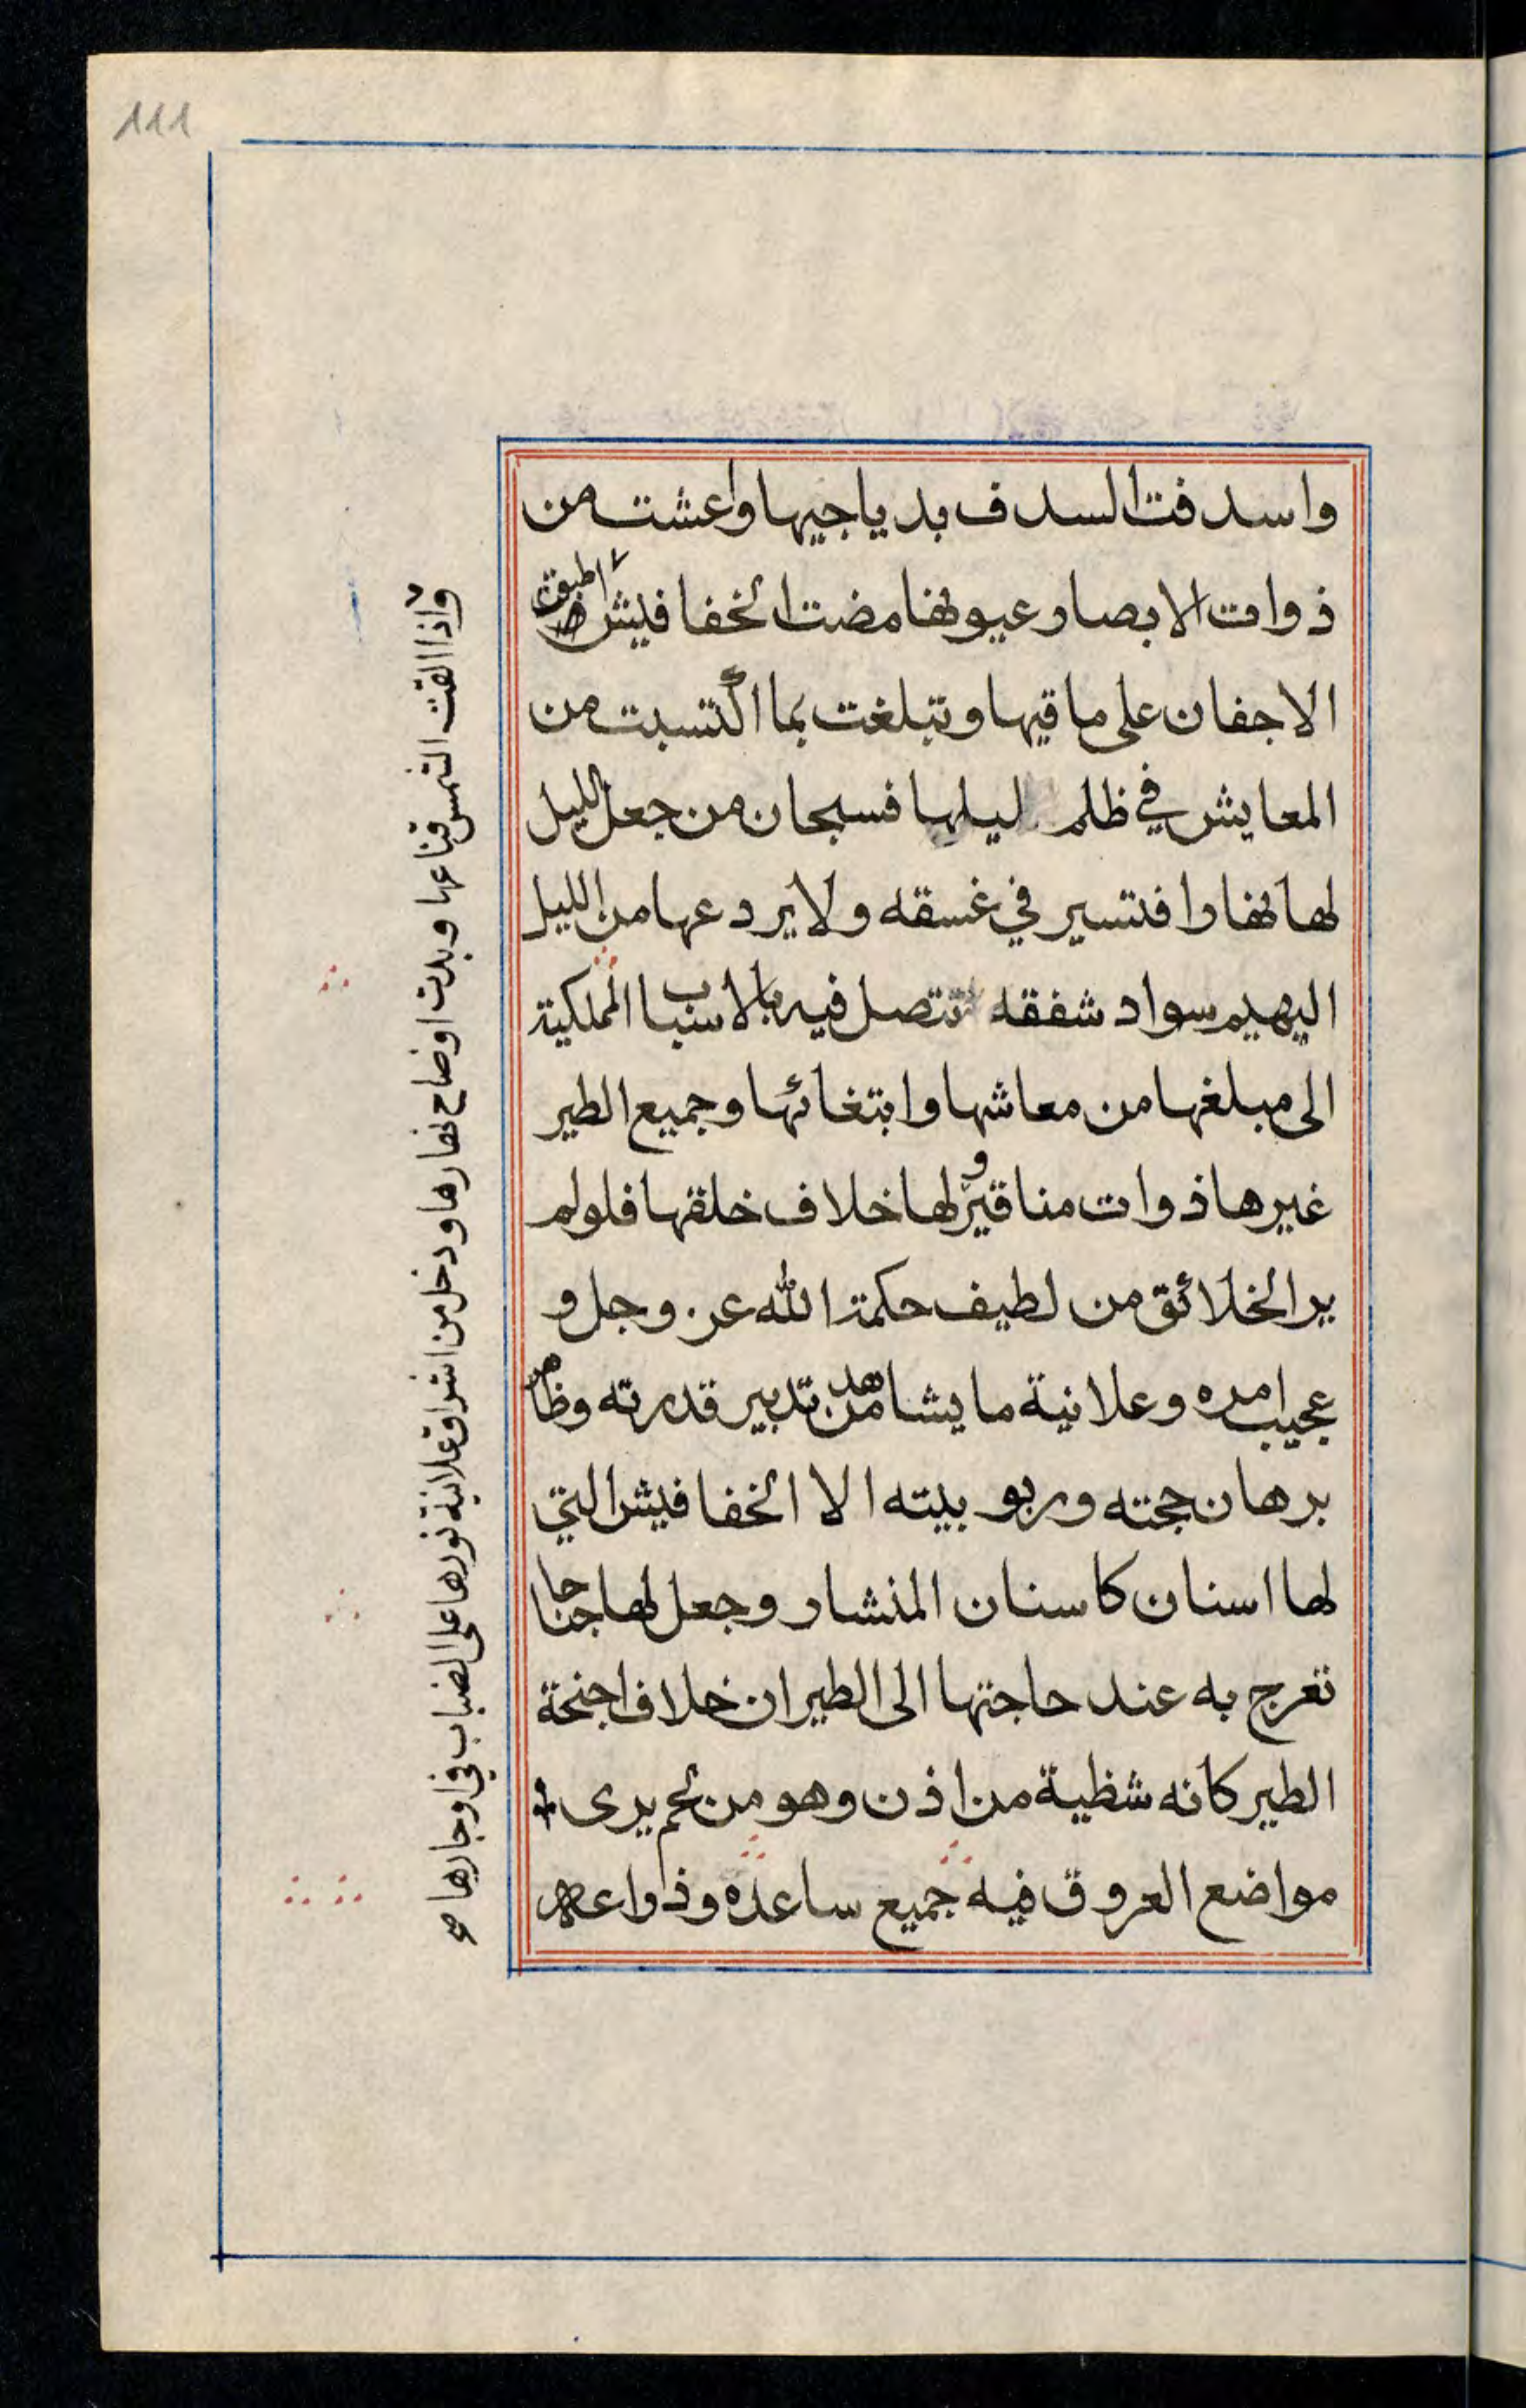 111
واسدفت السدف بدياجيها واعشت من
ذوات الابصار عيونها مضت الخفافيش اطبقت
الاجفان على ماقيها وتبلغت بما اكتسبت من
المعايش في ظلم ليلها فسبحان من جعل الليل
لها نهارا فتسير في غسقه ولا يردعها من الليل
البهيم سواد شفقه تتصل فيه بالاسباب الملكية
الى مبلغها من معاشها وابتغائها وجميع الطير
غيرها ذوات مناقير ولها خلاف خلقها فلو لم
ير الخلائق من لطيف حكمة الله عز وجل و
عجيب امره وعلانية ما يشاهد من تدبير قدرته وظاهر
برهان حجته وربوبيته الا الخفافيش التي
لها اسنان كاسنان المنشار وجعل لها جناحا
تعرج به عند حاجتها الى الطيران خلاف اجنحة
الطير كانه شظية من اذن وهو من لحم يرى
مواضع العروق فيه جميع ساعده وذواعه
واذا القت الشمس قناعها وبدت اوضاح نهارها ودخل من اشراق علانية نورها على الضباب في اوجارها صح